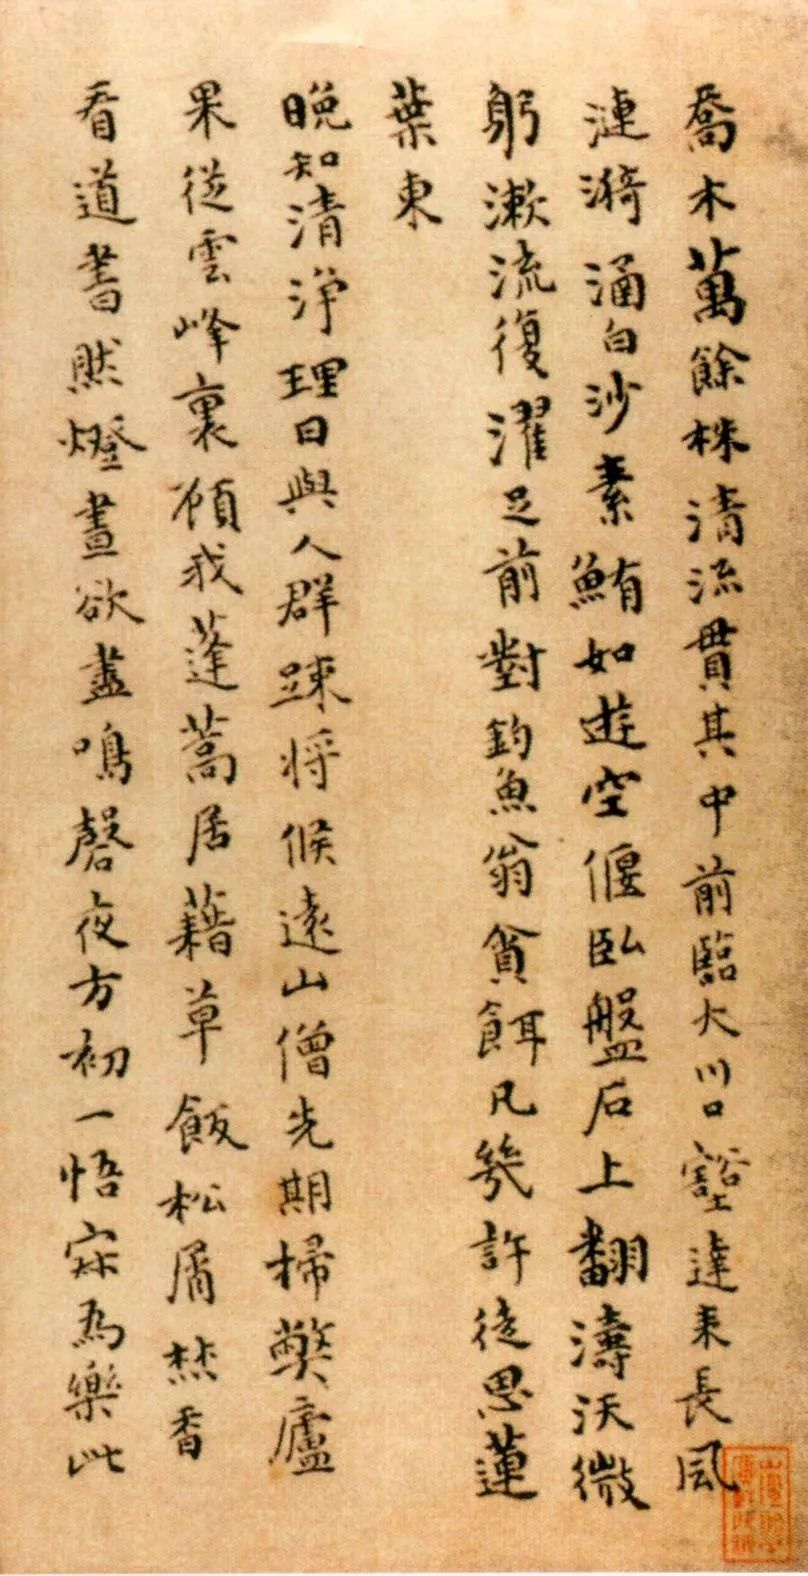 喬木萬餘株清流貫其中前臨大川口豁達来長風
漣漪涵白沙素鮪如遊空偃臥盤石上翻濤沃微
躬漱流復濯足前對釣魚翁貪餌凡幾許徒思蓮
葉東
晚知清淨理日與人群踈将候遠山僧先期掃獘廬
果從雲峰裏顧我蓬蒿居藉草飯松屑焚香
看道書然燈晝欲盡鳴磬夜方初一悟寂為樂此